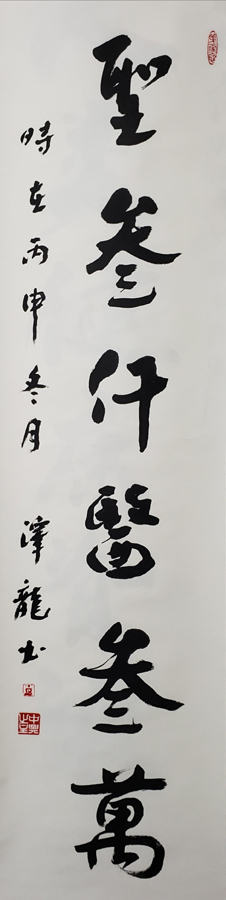 聖叁仟醫叁萬
時在丙申冬月 澤龍书